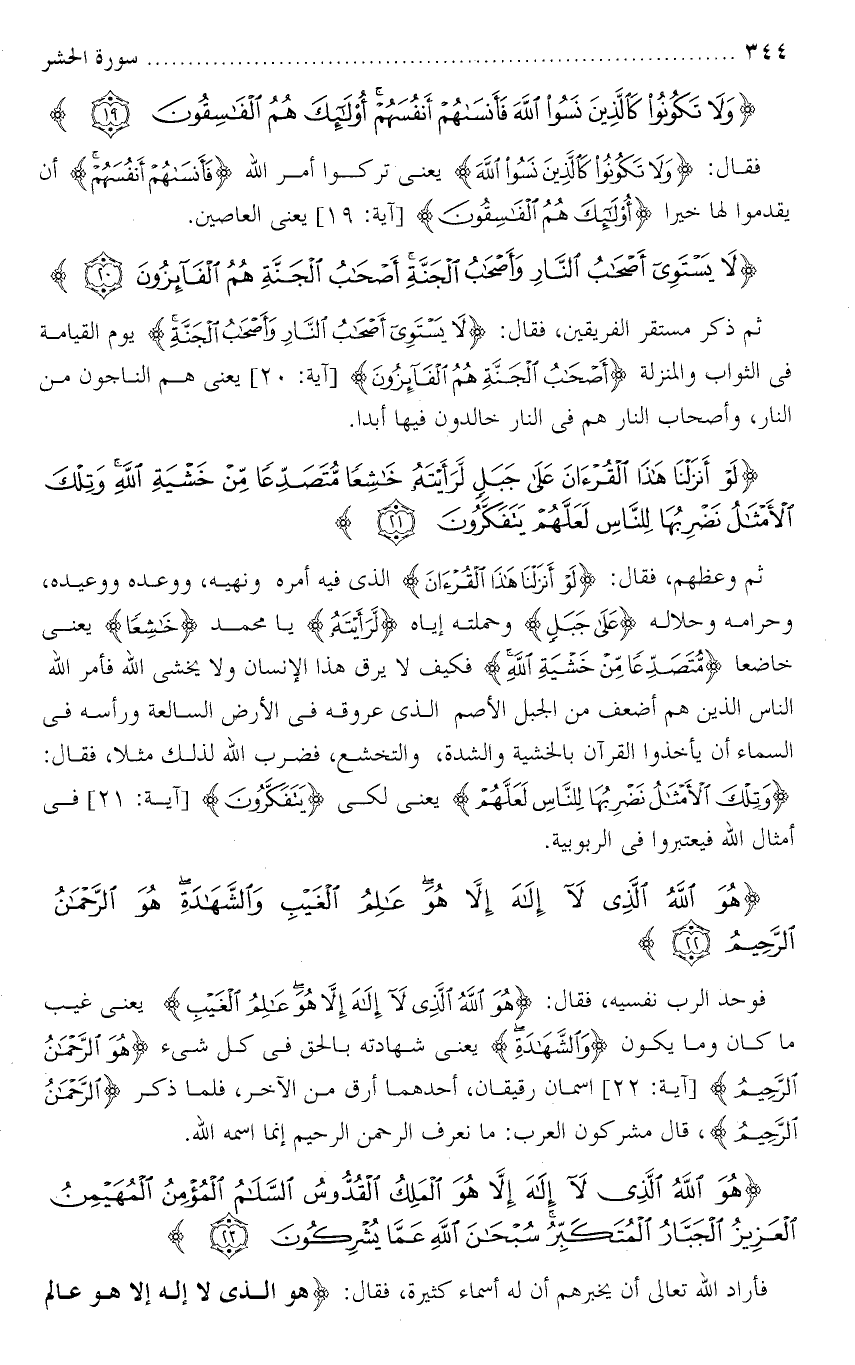 ٣٤٤ ........................................................................ سورة الحشر
﴿وَلَا تَكُونُوا۟ كَٱلَّذِينَ نَسُوا۟ ٱللَّهَ فَأَنسَىٰهُمْ أَنفُسَهُمْ ۚ أُو۟لَـٰٓئِكَ هُمُ ٱلْفَـٰسِقُونَ ١٩﴾
فقال: ﴿وَلَا تَكُونُوا۟ كَٱلَّذِينَ نَسُوا۟ ٱللَّهَ﴾ يعنى تركوا أمر الله ﴿فَأَنسَىٰهُمْ أَنفُسَهُمْ ۚ﴾ أن
يقدموا لها خيرا ﴿أُو۟لَـٰٓئِكَ هُمُ ٱلْفَـٰسِقُونَ﴾ [آية: ١٩] يعنى العاصين.
﴿لَا يَسْتَوِىٓ أَصْحَـٰبُ ٱلنَّارِ وَأَصْحَـٰبُ ٱلْجَنَّةِ ۚ أَصْحَـٰبُ ٱلْجَنَّةِ هُمُ ٱلْفَآئِزُونَ ٢٠﴾
ثم ذكر مستقر الفريقين، فقال: ﴿لَا يَسْتَوِىٓ أَصْحَـٰبُ ٱلنَّارِ وَأَصْحَـٰبُ ٱلْجَنَّةِ ۚ﴾ يوم القيامة
فى الثواب والمنزلة ﴿أَصْحَـٰبُ ٱلْجَنَّةِ هُمُ ٱلْفَآئِزُونَ﴾ [آية: ٢٠] يعنى هم الناجون من
النار، وأصحاب النار هم فى النار خالدون فيها أبدا.
﴿لَوْ أَنزَلْنَا هَـٰذَا ٱلْقُرْءَانَ عَلَىٰ جَبَلٍ لَّرَأَيْتَهُۥ خَـٰشِعًا مُّتَصَدِّعًا مِّنْ خَشْيَةِ ٱللَّهِ ۚ وَتِلْكَ
ٱلْأَمْثَـٰلُ نَضْرِبُهَا لِلنَّاسِ لَعَلَّهُمْ يَتَفَكَّرُونَ ٢١﴾
ثم وعظهم، فقال: ﴿لَوْ أَنزَلْنَا هَـٰذَا ٱلْقُرْءَانَ﴾ الذى فيه أمره ونهيه، ووعده ووعيده،
وحرامه وحلاله ﴿عَلَىٰ جَبَلٍ﴾ وحملته إياه ﴿لَّرَأَيْتَهُۥ﴾ يا محمد ﴿خَـٰشِعًا﴾ يعنى
خاضعا ﴿مُّتَصَدِّعًا مِّنْ خَشْيَةِ ٱللَّهِ ۚ﴾ فكيف لا يرق هذا الإنسان ولا يخشى الله فأمر الله
الناس الذين هم أضعف من الجبل الأصم الذى عروقه فى الأرض السالعة ورأسه فى
السماء أن يأخذوا القرآن بالخشية والشدة، والتخشع، فضرب الله لذلك مثلا، فقال:
﴿وَتِلْكَ ٱلْأَمْثَـٰلُ نَضْرِبُهَا لِلنَّاسِ لَعَلَّهُمْ﴾ يعنى لكى ﴿يَتَفَكَّرُونَ﴾ [آية: ٢١] فى
أمثال الله فيعتبروا فى الربوبية.
﴿هُوَ ٱللَّهُ ٱلَّذِى لَآ إِلَـٰهَ إِلَّا هُوَ ۖ عَـٰلِمُ ٱلْغَيْبِ وَٱلشَّهَـٰدَةِ ۖ هُوَ ٱلرَّحْمَـٰنُ
ٱلرَّحِيمُ ٢٢﴾
فوحد الرب نفسيه، فقال: ﴿هُوَ ٱللَّهُ ٱلَّذِى لَآ إِلَـٰهَ إِلَّا هُوَ ۖ عَـٰلِمُ ٱلْغَيْبِ﴾ يعنى غيب
ما كان وما يكون ﴿وَٱلشَّهَـٰدَةِ ۖ﴾ يعنى شهادته بالحق فى كل شىء ﴿هُوَ ٱلرَّحْمَـٰنُ
ٱلرَّحِيمُ﴾ [آية: ٢٢] اسمان رقيقان، أحدهما أرق من الآخر، فلما ذكر ﴿ٱلرَّحْمَـٰنُ
ٱلرَّحِيمُ﴾، قال مشركون العرب: ما نعرف الرحمن الرحيم إنما اسمه الله.
﴿هُوَ ٱللَّهُ ٱلَّذِى لَآ إِلَـٰهَ إِلَّا هُوَ ٱلْمَلِكُ ٱلْقُدُّوسُ ٱلسَّلَـٰمُ ٱلْمُؤْمِنُ ٱلْمُهَيْمِنُ
ٱلْعَزِيزُ ٱلْجَبَّارُ ٱلْمُتَكَبِّرُ ۚ سُبْحَـٰنَ ٱللَّهِ عَمَّا يُشْرِكُونَ ٢٣﴾
فأراد الله تعالى أن يخبرهم أن له أسماء كثيرة، فقال: ﴿هو الذى لا إله إلا هو عالم